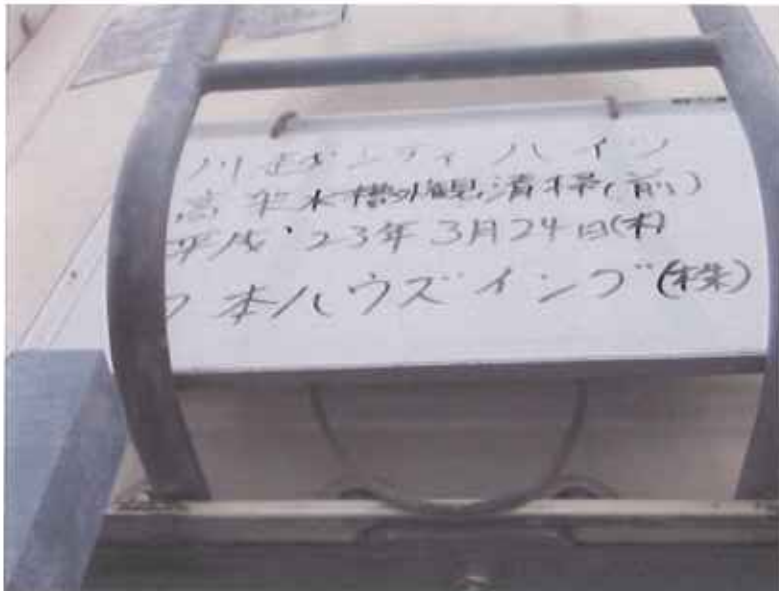 川越 ハイツ
高架水槽外観清掃(前)
平成'23年3月24日(木)
日本ハウズイング(株)